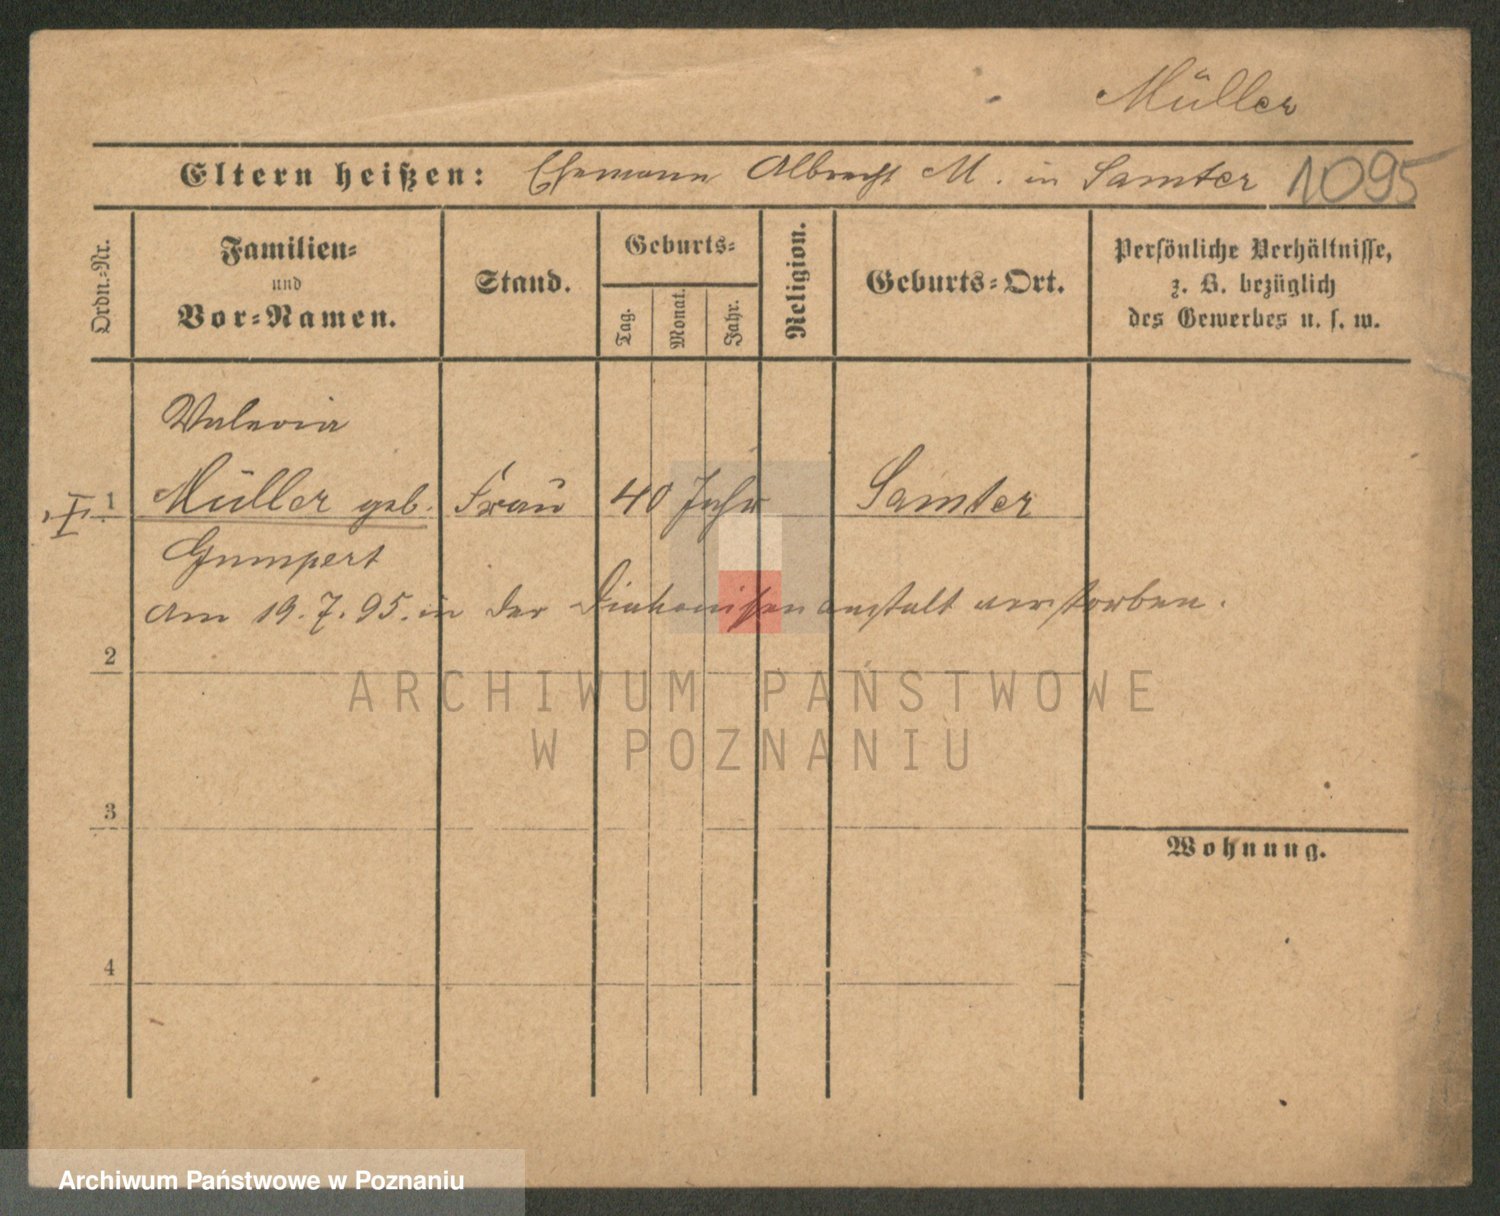 Müller
Eltern heißen: Ehemann Albrecht M. in Samter 1095
Ordn.-Nr.
Familien-
und
Vor-Namen.
Stand.
Geburts-
Tag.
Monat.
Jahr.
Religion.
Geburts-Ort.
Persönliche Verhältnisse,
z. B. bezüglich
des Gewerbes u. s. w.
Valeria
I 1 Müller geb. Frau 40 Jahr Samter
Gumpert
am 19.7.95. in der Diakonissenanstalt verstorben.
2
ARCHIWUM PAŃSTWOWE
W POZNANIU
3
Wohnung.
4
Archiwum Państwowe w Poznaniu